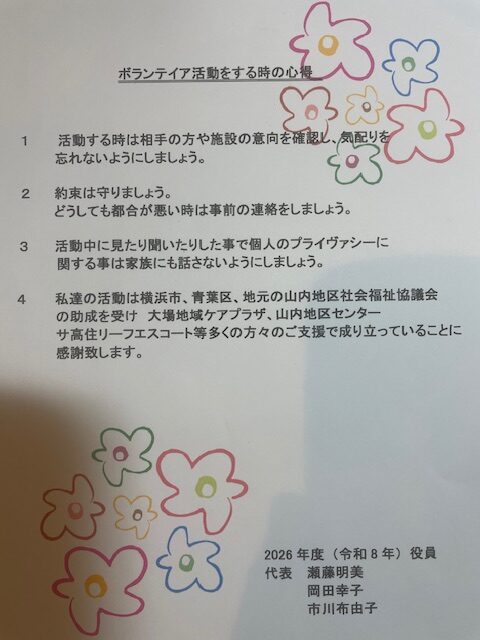 ボランテイア活動をする時の心得
1 活動する時は相手の方や施設の意向を確認し、気配りを
忘れないようにしましょう。
2 約束は守りましょう。
どうしても都合が悪い時は事前の連絡をしましょう。
3 活動中に見たり聞いたりした事で個人のプライヴァシーに
関する事は家族にも話さないようにしましょう。
4 私達の活動は横浜市、青葉区、地元の山内地区社会福祉協議会
の助成を受け 大場地域ケアプラザ、山内地区センター
サ高住リーフエスコート等多くの方々のご支援で成り立っていることに
感謝致します。
2026年度（令和8年）役員
代表 瀬藤明美
岡田幸子
市川布由子